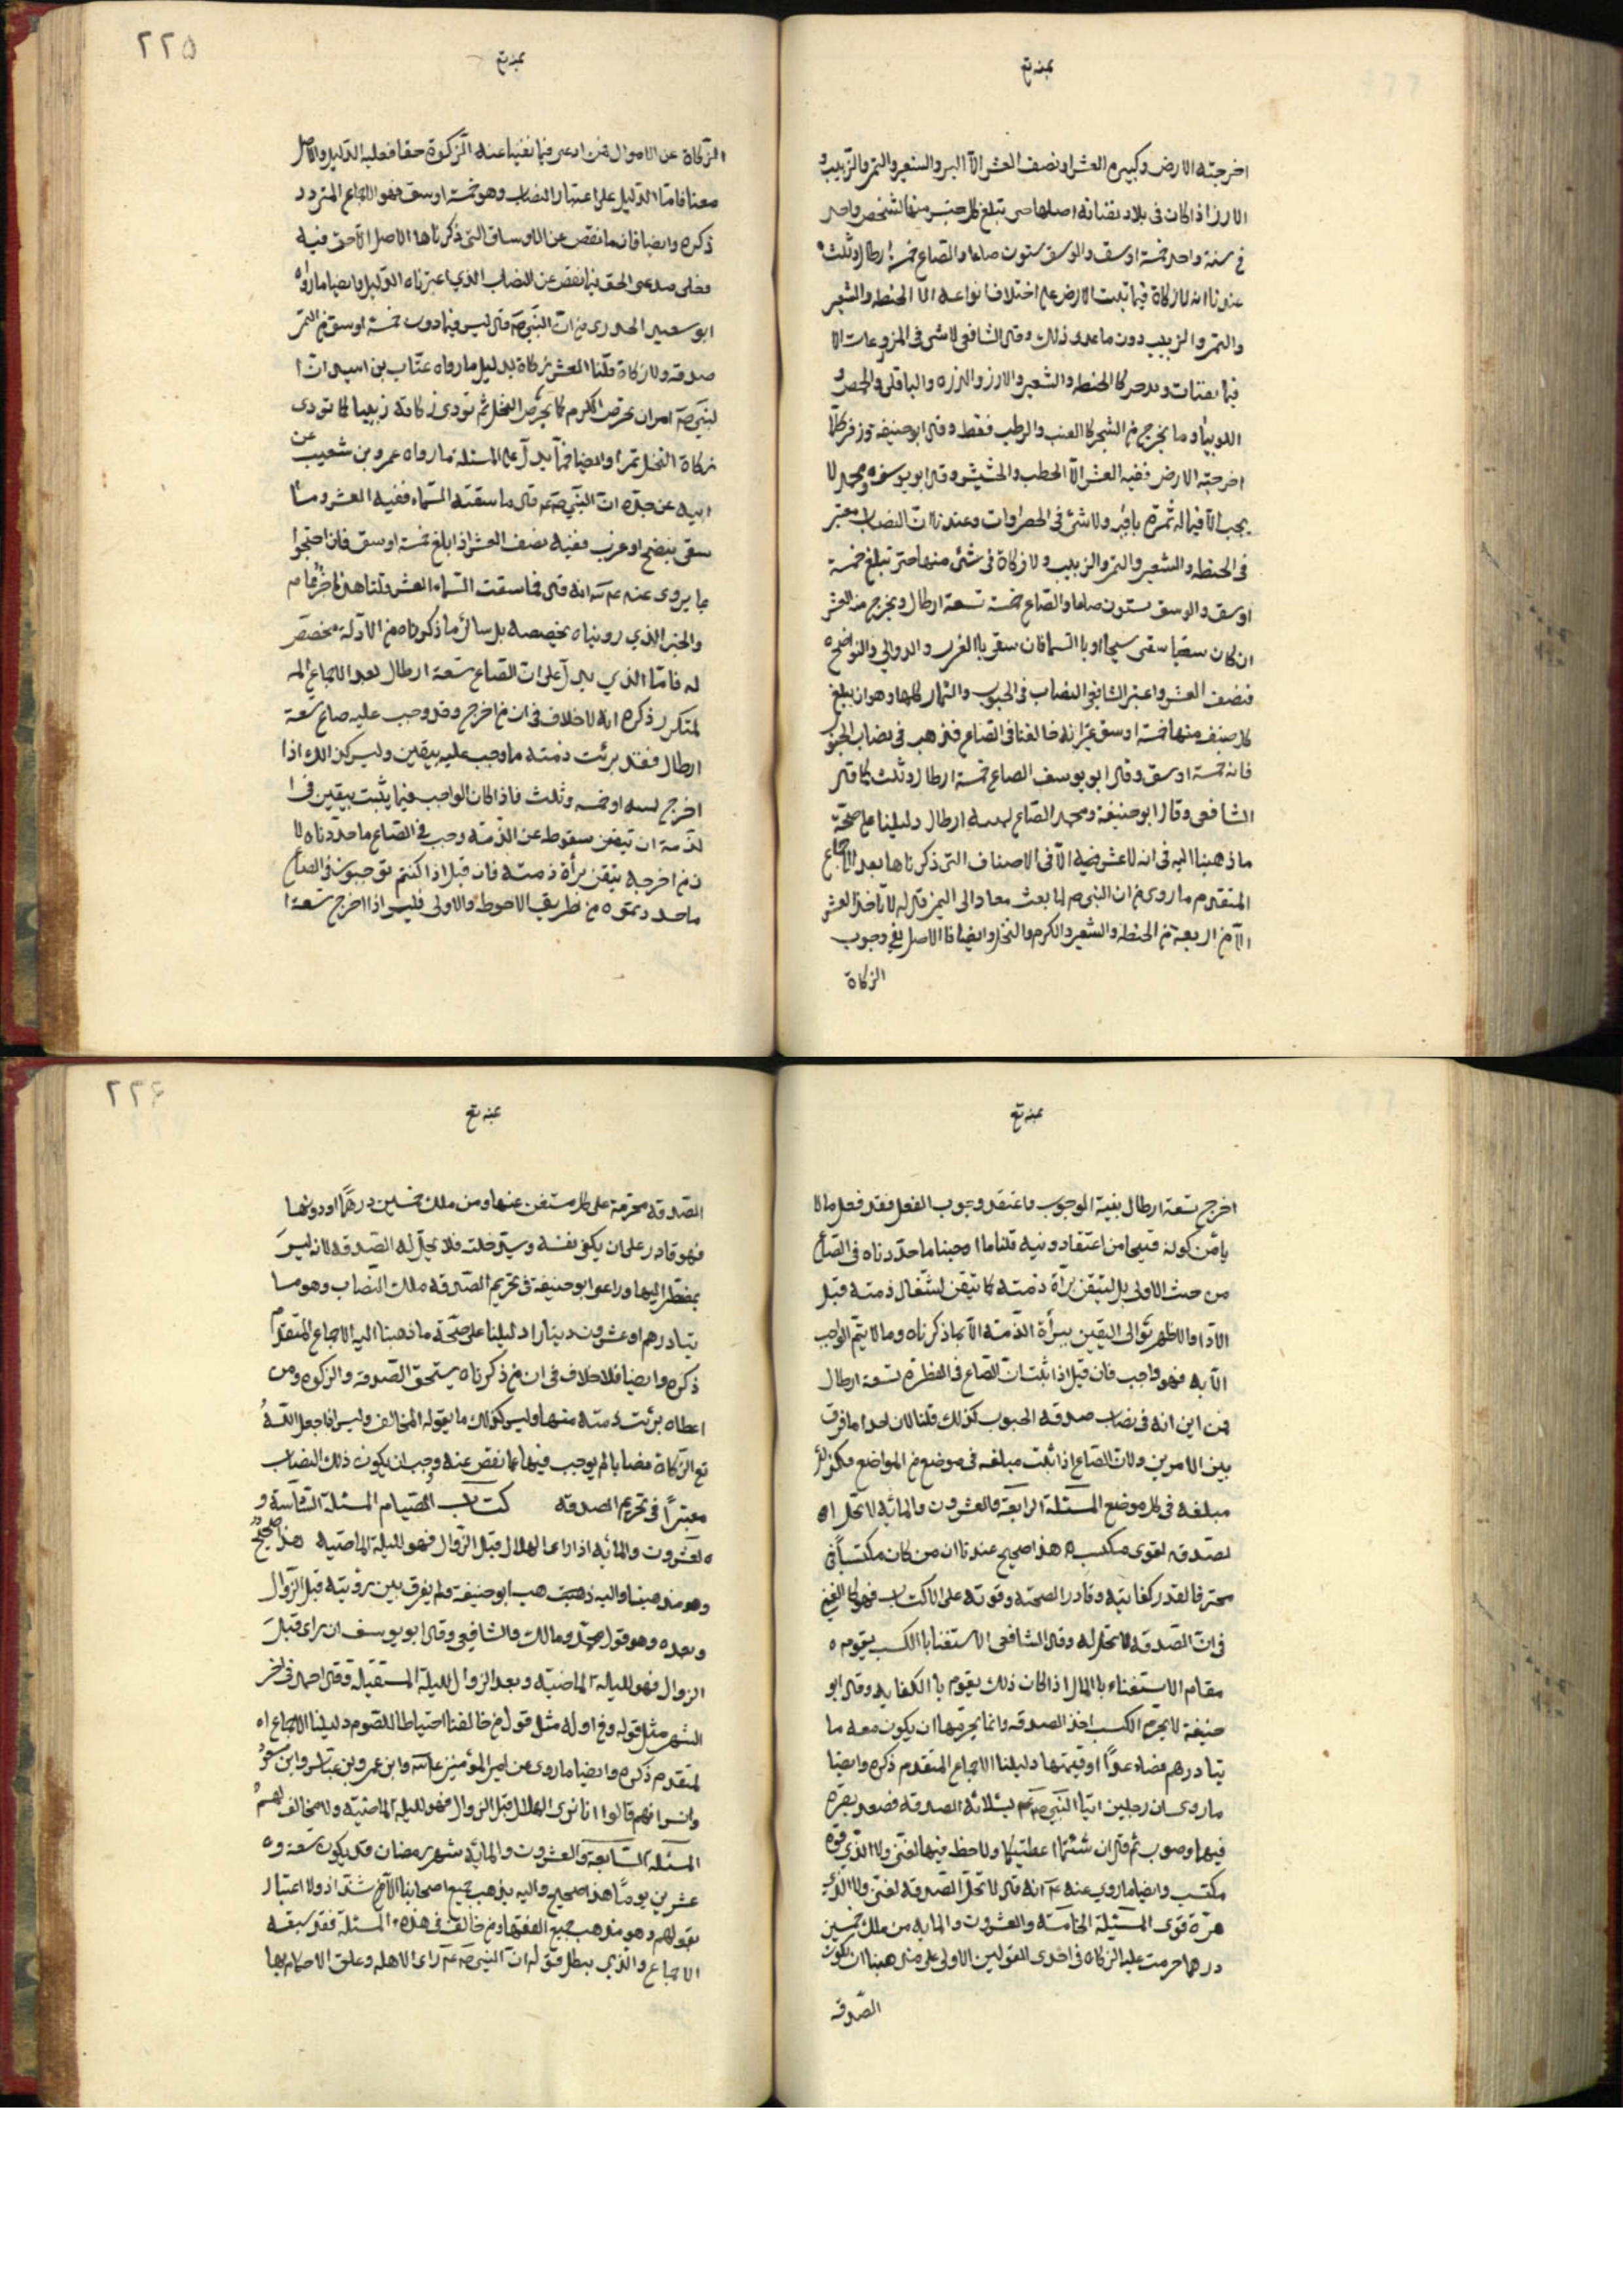 عنه تع
اخرجته الارض وكبيره العشر او نصف العشر الا البر والشعير والتمر والزبيب و
الارز اذا كان في بلاد يقتاته اهلها حتى تبلغ كل جنس منها لشخص واحد
في سنة واحد خمسة اوسق والوسق ستون صاعا والصاع خمسة ارطال وثلث
عندنا انه لا زكاة فيما تنبت الارض على اختلاف انواعه الا الحنطه والشعير
والتمر والزبيب دون ما عدى ذلك وقال الشافعي لا شئ في المزروعات الا
فيما يقتات ويدخر كالحنطه والشعير والارز والذره والباقلي والحمص و
اللوبيا وما يخرج من الشجر كالعنب والرطب فقط وقال ابو حنيفه وزفر كلما
اخرجته الارض ففيه العشر الا الحطب والحشيش وقال ابو يوسف ومحمد لا
يجب الا فيما له ثمرة باقية ولا شئ في الخضراوات وعندنا ان النصاب معتبر
في الحنطه والشعير والتمر والزبيب ولا زكاة في شئ منها حتى تبلغ خمسة
اوسق والوسق ستون صاعا والصاع خمسة تسعة ارطال ويخرج منه العشر
ان كان سقيا سقى سيحا او بالسما فان سقى بالغرب والدوالي والنواضح
فنصف العشر واعتبر الشافعي النصاب في الحبوب والثمار كلها وهو ان يبلغ
كل صنف منها خمسة اوسق غير انه خالفنا في الصاع فذهب في نصاب الحبوب
فانه خمسة اوسق وقال ابو يوسف الصاع خمسة ارطال وثلث كما قال
الشافعي وقال ابو حنيفة ومحمد الصاع ثمانية ارطال دليلنا على صحة
ما ذهبنا اليه في انه لا عشر فيه الا في الاصناف التي ذكرناها بعد الاجماع
المتقدم ما روى من ان النبي ص لما بعث معاذا الى اليمن قال له لا تاخذ العشر
الا من اربعة من الحنطه والشعير والكرم والنخل وايضا فالاصل نفي وجوب
الزكاة
٢٢٥
عنه تع
الزكاة عن الاموال فمن ادعى فيما نفينا عنه الزكوة حقا فعليه الدليل والاصل
معنا فاما الدليل على اعتبار النصاب وهو خمسة اوسق فهو الاجماع المتردد
ذكره وايضا فان ما نقص عن الاوساق التي ذكرناها الاصل الا حق فيه
فعلى مدعى الحق فيما نقص عن النصاب الذي اعتبرناه الدليل وايضا ما رواه
ابو سعيد الخدري من ان النبي ص قال ليس فيما دون خمسة اوسق من التمر
صدقه ولا زكاة قلنا العشر زكاة بدليل ما رواه عتاب بن اسيد ان ا
لنبي ص امر ان يخرص الكرم كما يخرص النخل ثم تودى زكاته زبيبا كما تودى
زكاة النخل تمرا وايضا فمما يدل على المسئلة ما رواه عمرو بن شعيب عن
ابيه عن جده ان النبي ص قال ما سقته السماء ففيه العشر وما
سقى بنضح او غرب ففيه نصف العشر اذا بلغ خمسة اوسق فان احتجوا
بما يروى عنه ع انه قال فما سقت السماء العشر قلنا هذا خبر عام
والخبر الذي رويناه يخصصه بل سائر ما ذكرناه من الادلة مخصص
له فاما الذي يدل على ان الصاع تسعة ارطال بعد الاجماع الم
لمتكرر ذكره انه لا خلاف في ان من اخرج وقد وجب عليه صاع تسعة
ارطال فقد برئت ذمته ما وجب عليه بيقين وليس كذلك اذا
اخرج ثمانية او خمسه وثلث فاذا كان الواجب فيما يثبت بيقين في ا
لذمة ان تيقن سقوطه عن الذمة وجب في الصاع ما حددناه لا
ن من اخرجه يتقن براة ذمته فان قيل اذا كنتم توجبون في الصاع
ما حددتموه من طريق الاحوط والاولى فليس اذا اخرج تسعة ا
عنه تع
اخرج تسعة ارطال بنية الوجوب واعتقد وجوب الفعل فقد فعل ما لا
يامن كونه قبيحا من اعتقاد ونيه قلنا ما اوجبنا ما حددناه في الصاع
من حيث الاولى بل ليتيقن براة ذمته كما تيقن اشتغال ذمته قبل
الاداء والاظهر تؤالى اليقين ببرأة الذمة الا بما ذكرناه وما لا يتم الواجب
الا به فهو واجب فان قيل اذا ثبت ان الصاع في الفطرة تسعة ارطال
فمن اين انه في نصاب صدقة الحبوب كذلك قلنا لان احدا ما فرق
بين الامرين ولان الصاع اذا ثبت مبلغه في موضع من المواضع فكذلك
مبلغه في كل موضع المسئلة الرابعة والعشرون والمائه لا تحل ال
لصدقه لقوى مكتسب هذا صحيح عندنا ان من كان مكتسبا في
محترفا لقدر كفايته وقادر الصحته وقوته على الاكتساب فهو كالغني
في ان الصدقه لا تحل له وقال الشافعي الاستغنا بالكسب يقوم
مقام الاستغناء بالمال اذا كان ذلك يقوم بالكفايه وقال ابو
حنيفة لا يحرم الكسب اخذ الصدقه وانما يحرمها ان يكون معه ما
يتا درهم فضاعدا او قيمتها دليلنا الاجماع المتقدم ذكره وايضا
ما روى ان رجلين اتيا النبي ص يسئلانه الصدقه فصعد بصره
فيهما وصوب ثم قال ان شئتما اعطيتكما ولا حظ فيها لغنى ولا الذي قوة
مكتسب وايضا ما روي عنه ع انه قال لا تحل الصدقه لغنى ولا الذي
مرة قوى المسئلة الخامسة والعشرون والمايه من ملك خمسين
درهما حرمت عليه الزكاه في احدى القولين الاولى على مذهبنا ان يكون
الصدقه
٢٢۶
عنه تع
الصدقه محرمة على كل مستغن عنها ومن ملك خمسين درهما او دونها
فهو قادر على ان يكفى نفسه وسيتر خلته فلا تحل له الصدقه لانه ليس
بمضطر اليها وراعى ابو حنيفة في تحريم الصدقه ملك النصاب وهو ما
يتا درهم او عشرون دينارا دليلنا على صحة ما ذهبنا اليه الاجماع المتقدم
ذكره وايضا فلا خلاف في ان من ذكرناه يستحق الصدقة والزكوه ومن
اعطاه برئت ذمته منها وليس كذلك ما يقوله المخالف وليس اذا جعل الله
تع الزكاة نصابا لم يوجب فيها عما نقص عنه وجب ان يكون ذلك النصاب
معتبرا في تحريم الصدقه كتاب الصيام المسئلة السادسة و
العشرون والمائه اذا راى الهلال قبل الزوال فهو لليلة الماضيه هذا صحيح
وهو مذهبنا واليه ذهب ابو حنيفة ولم يفرق بين رؤيته قبل الزوال
وبعده وهو قول محمد ومالك والشافعي وقال ابو يوسف ان راى قبل
الزوال فهو لليلة الماضية وبعد الزوال لليلة المستقبلة وقال احمد في اخر
الشهر مثل قوله وفي اوله مثل قول من خالفنا احتياطا للصوم دليلنا الاجماع ا
لمتقدم ذكره وايضا ما روى عن امير المؤمنين ع وابن عمر وبن عباس وابن مسعود
وانس انهم قالوا اذا رؤى الهلال قبل الزوال فهو لليلة الماضية ولا مخالف لهم
المسئله السابعة والعشرون والمائه شهر رمضان قد يكون تسعة و
عشرين يوما هذا صحيح واليه يذهب جميع اصحابنا الا من شذ اذ ولا اعتبار
بقولهم وهو مذهب جميع الفقهاء ومن خالف في هذه المسئلة فقد سبقه
الاجماع والذي يبطل قوله ان النبي ص راى الاهله وعلق الاحكام بها